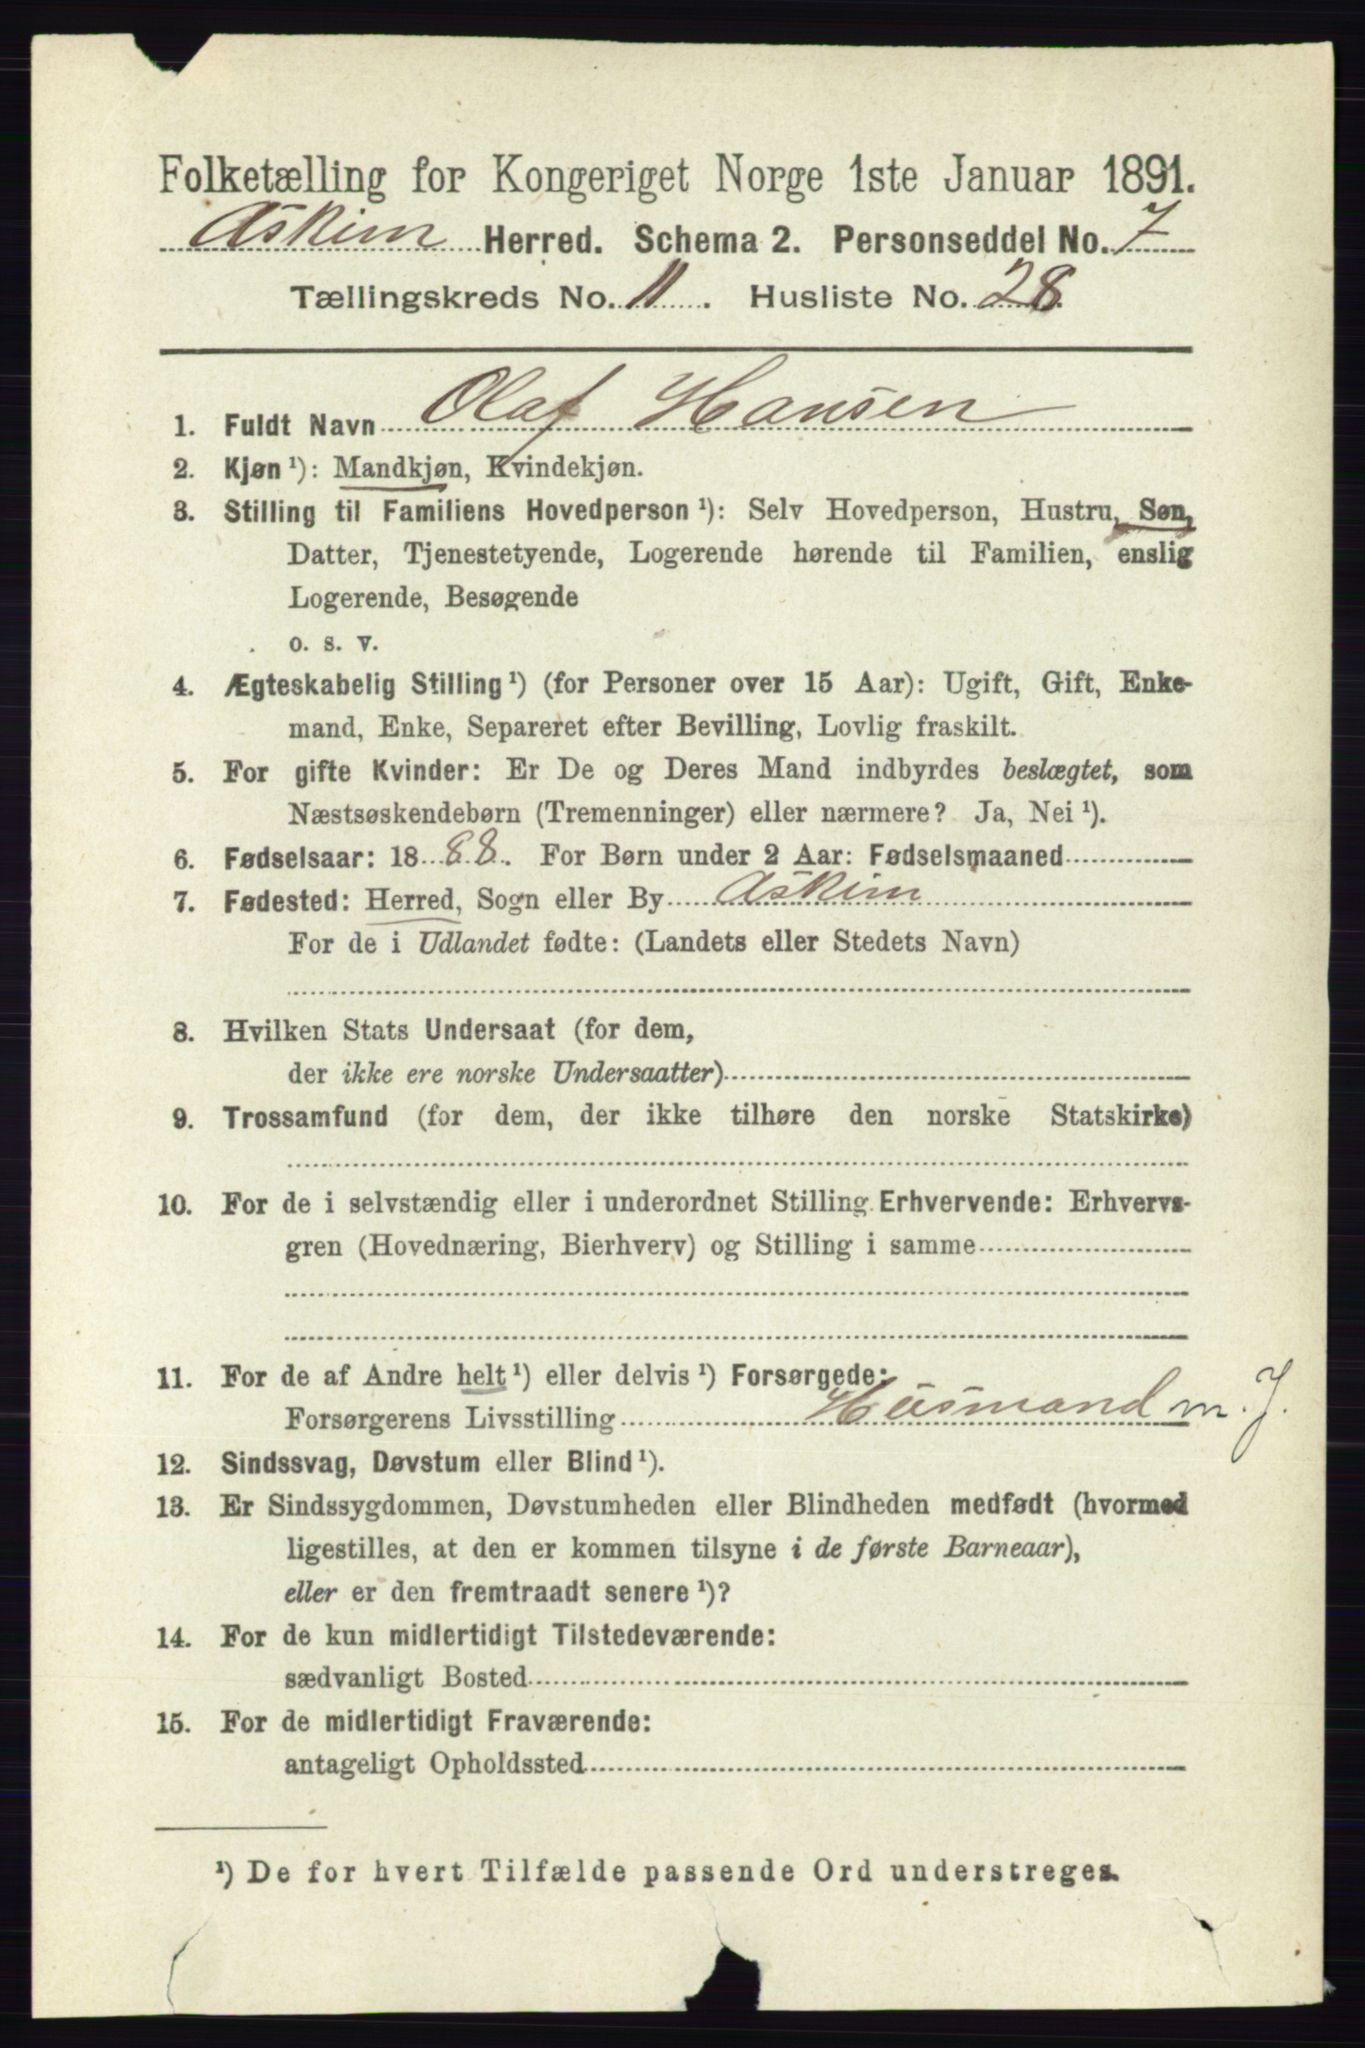 Folketælling for Kongeriget Norge 1ste Januar 1891.
Askim Herred. Schema 2. Personseddel No. 7
Tællingskreds No. 11. Husliste No. 28.
1. Fuldt Navn Olaf Hansen
2. Kjøn ¹): Mandkjøn, Kvindekjøn.
3. Stilling til Familiens Hovedperson ¹): Selv Hovedperson, Hustru, Søn,
Datter, Tjenestetyende, Logerende hørende til Familien, enslig
Logerende, Besøgende
o. s. v.
4. Ægteskabelig Stilling ¹) (for Personer over 15 Aar): Ugift, Gift, Enke-
mand, Enke, Separeret efter Bevilling, Lovlig fraskilt.
5. For gifte Kvinder: Er De og Deres Mand indbyrdes beslægtet, som
Næstsøskendebørn (Tremenninger) eller nærmere? Ja, Nei ¹).
6. Fødselsaar: 1888. For Børn under 2 Aar: Fødselsmaaned
7. Fødested: Herred, Sogn eller By Askim
For de i Udlandet fødte: (Landets eller Stedets Navn)
8. Hvilken Stats Undersaat (for dem,
der ikke ere norske Undersaatter)
9. Trossamfund (for dem, der ikke tilhøre den norske Statskirke)
10. For de i selvstændig eller i underordnet Stilling Erhvervende: Erhvervs-
gren (Hovednæring, Bierhverv) og Stilling i samme
11. For de af Andre helt ¹) eller delvis ¹) Forsørgede:
Forsørgerens Livsstilling Husmand m. J.
12. Sindssvag, Døvstum eller Blind ¹).
13. Er Sindssygdommen, Døvstumheden eller Blindheden medfødt (hvormed
ligestilles, at den er kommen tilsyne i de første Barneaar),
eller er den fremtraadt senere ¹)?
14. For de kun midlertidigt Tilstedeværende:
sædvanligt Bosted
15. For de midlertidigt Fraværende:
antageligt Opholdssted
¹) De for hvert Tilfælde passende Ord understreges.